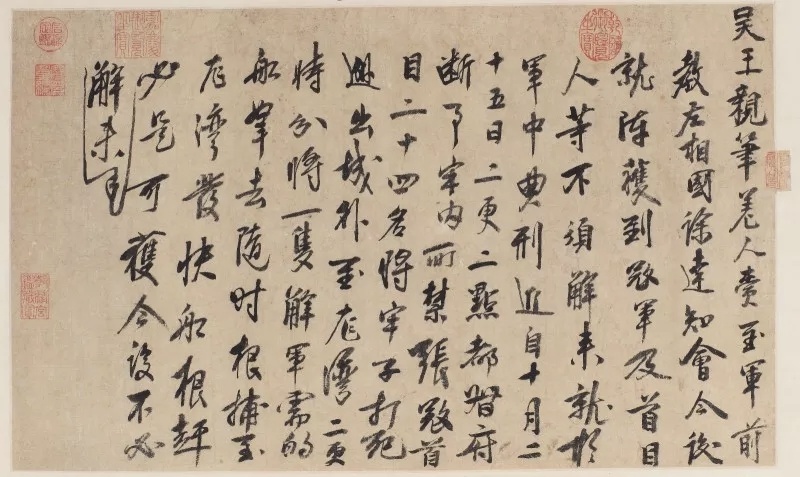 吳王親筆差人賫至軍前
教左相國徐達知會今後
就陣獲到寇軍及首目
人等不須解來就於
軍中典刑近自十月二
十五日二更二點都督府
斷事牢內所禁張寇首
目二十四名將牢子打死
越出城外至龍灣二更
時分將一隻解軍需的
船拏去隨时根捕至
龍灣發快船根趕
必是可獲今後不必
解來